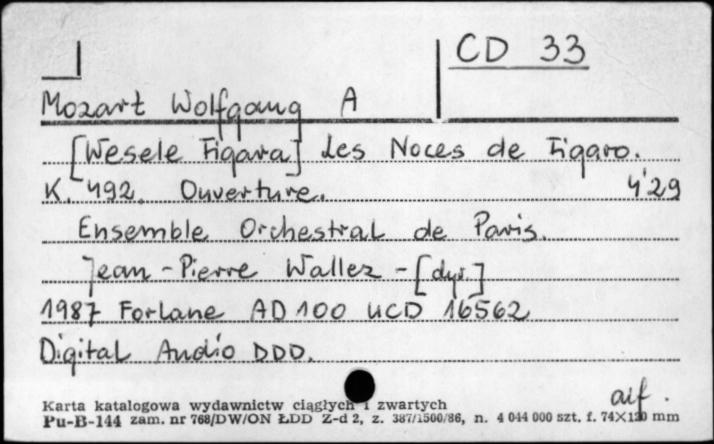 CD 33
Mozart Wolfgang A
[Wesele Figara] Les Noces de Figaro.
K. 492. Ouverture. 4'29
Ensemble Orchestral de Paris.
Jean-Pierre Wallez - [dyr.]
1987 Forlane AD 100 UCD 16562
Digital Audio DDD.
Karta katalogowa wydawnictw ciągłych i zwartych
Pu-B-144 zam. nr 768/DW/ON ŁDD Z-d 2, z. 387/1500/86, n. 4 044 000 szt. f. 74×120 mm